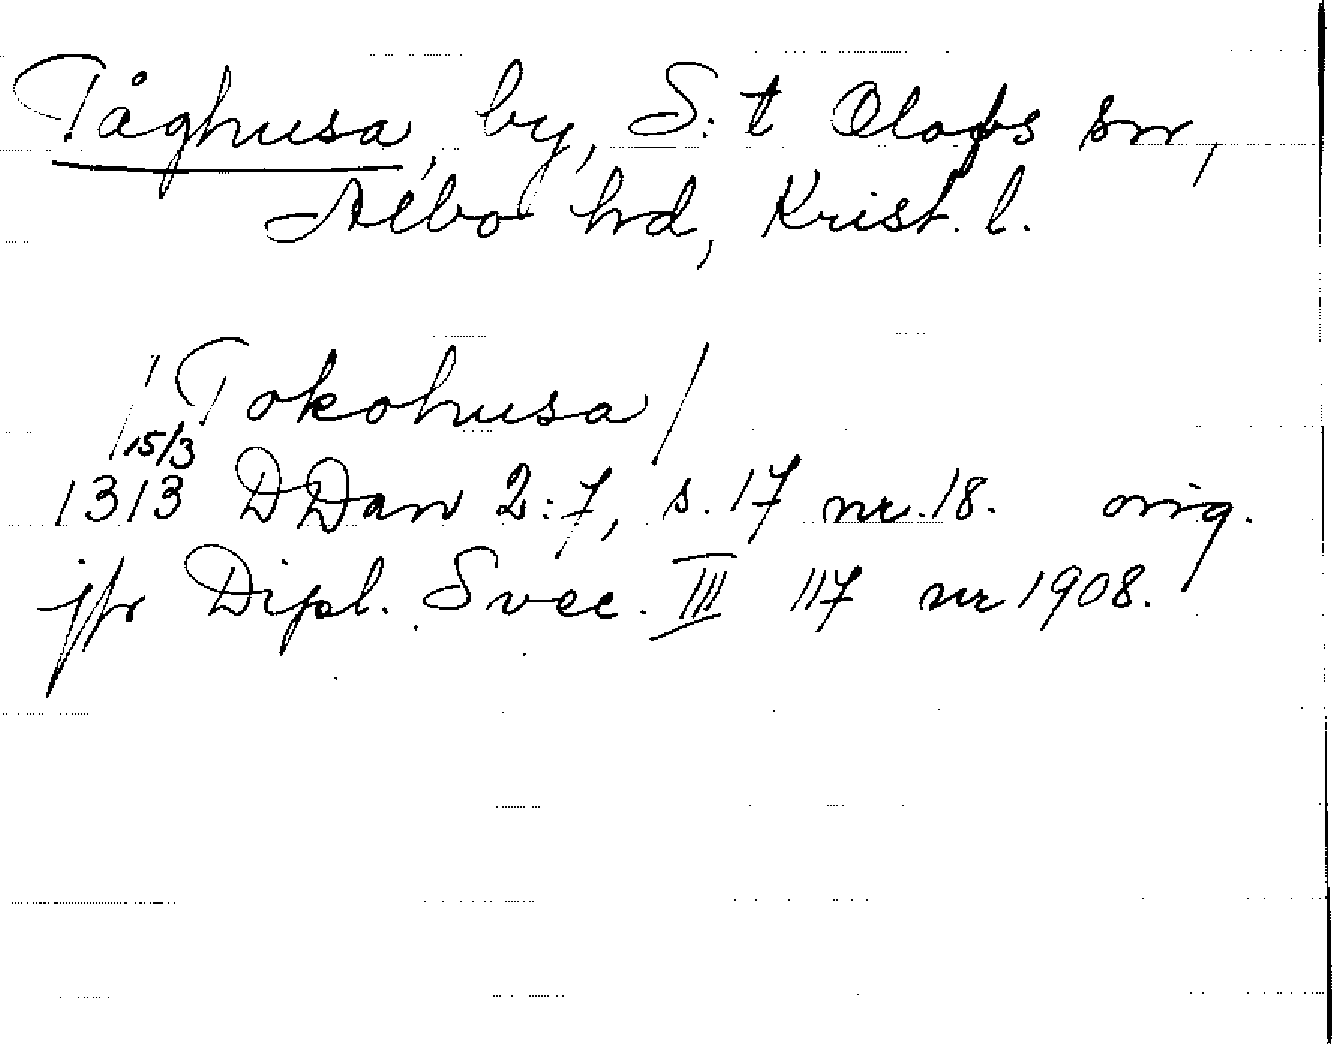 Tåghusa, by, S:t Olofs sn,
Albo hd, Krist. l.
/Tokohusa/
15/3
1313 DDan 2:7, s. 17 nr. 18. orig.
jfr Dipl. Svec. III 117 nr 1908.